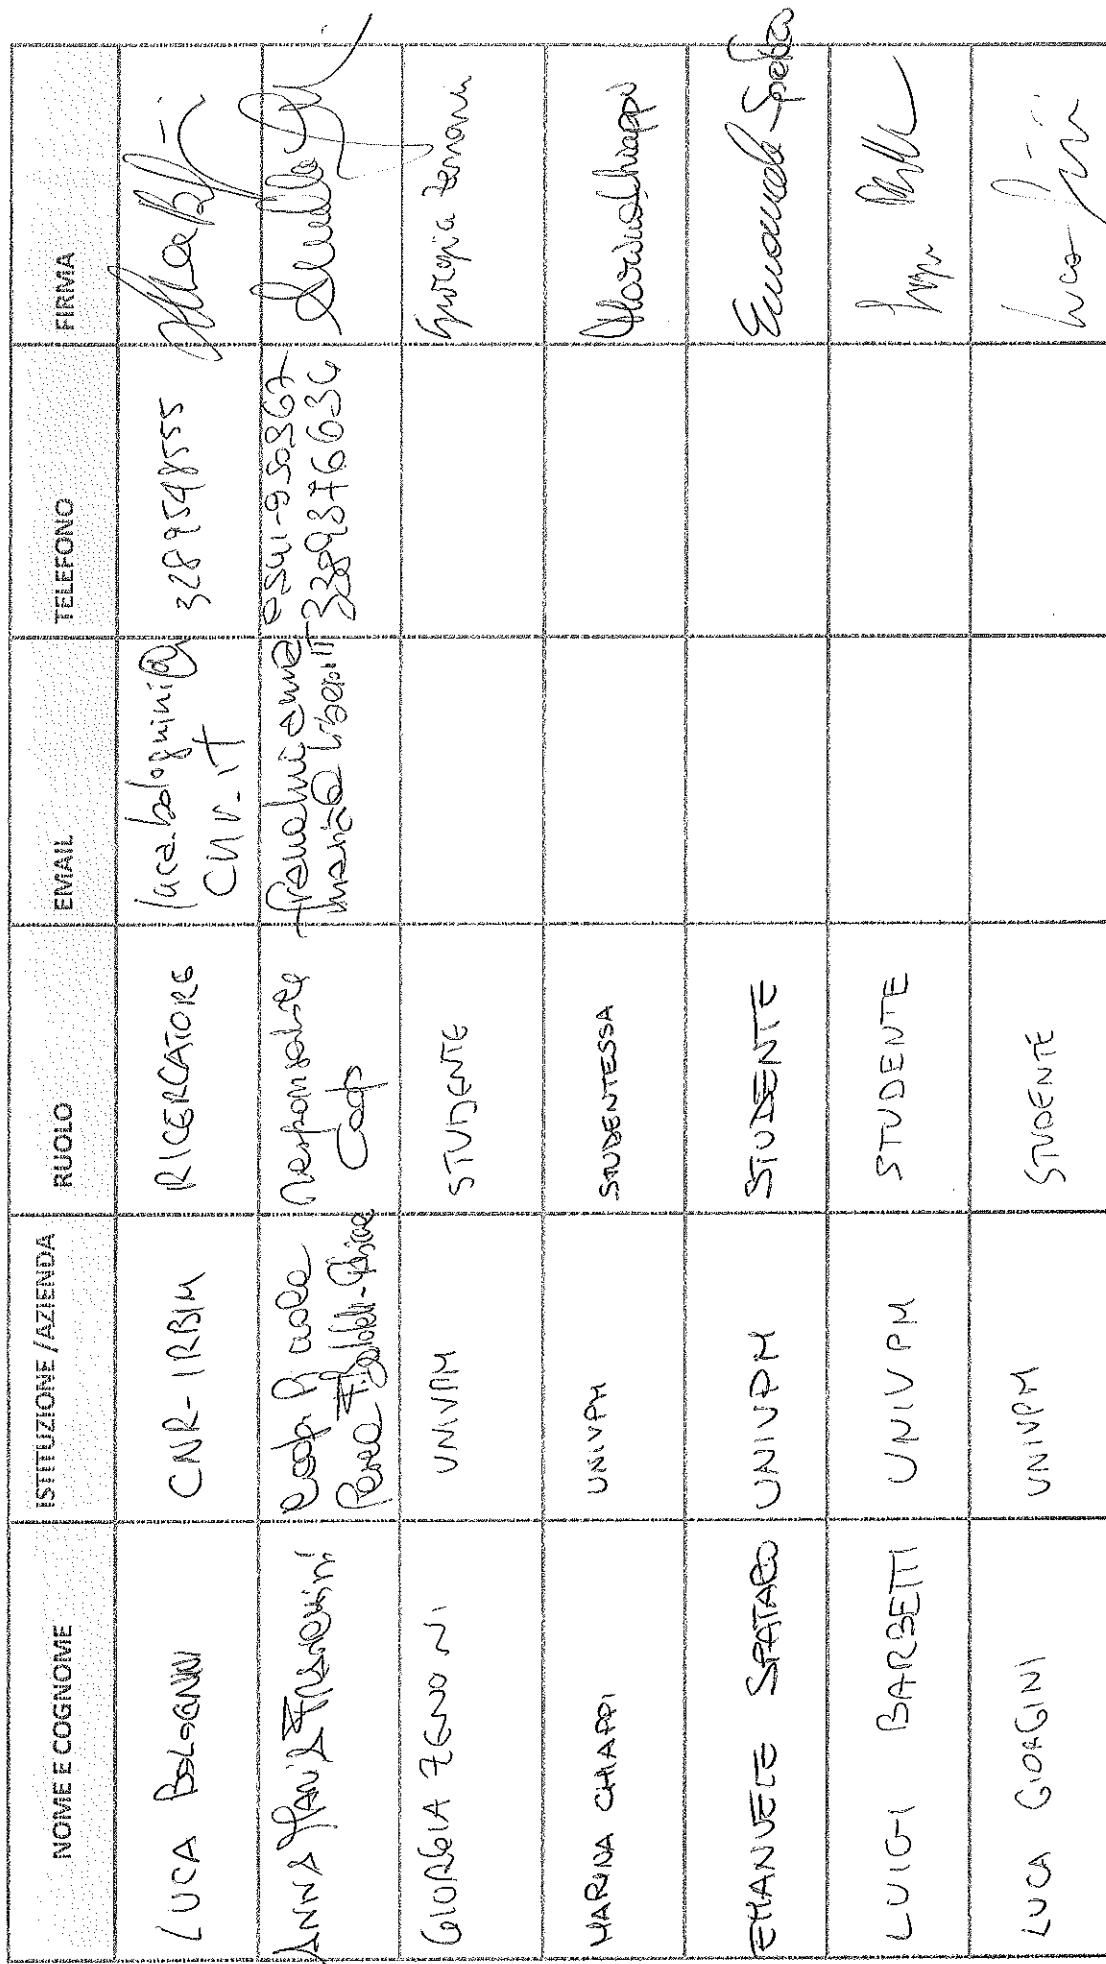 NOME E COGNOME ISTITUZIONE /AZIENDA RUOLO EMAIL TELEFONO FIRMA
LUCA BOLOGNINI CNR-IRBIM RICERCATORE luca.bolognini@
cnr.it 3289548555
ANNA Maria responsabile
Coop 3389376634
GIORGIA ZENONI UNIVPM STUDENTE Giorgia Zenoni
MARINA CHIAPPI UNIVPM STUDENTESSA Marina Chiappi
EMANUELE SPATARO UNIVPM STUDENTE Emanuele Spataro
LUIGI BARBETTI UNIVPM STUDENTE Luigi
LUCA GIORGINI UNIVPM STUDENTE Luca